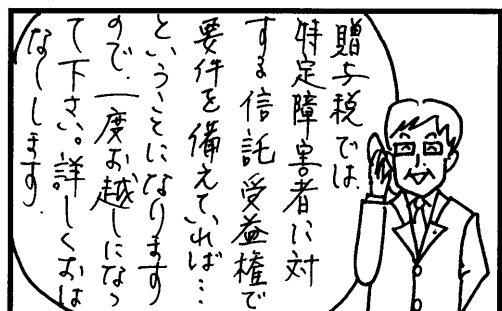 贈与税では、
特定障害者に対
する信託受益権で
要件を備えていれば…
ということになります
ので、一度お越しになっ
て下さい。詳しくおは
なしします.